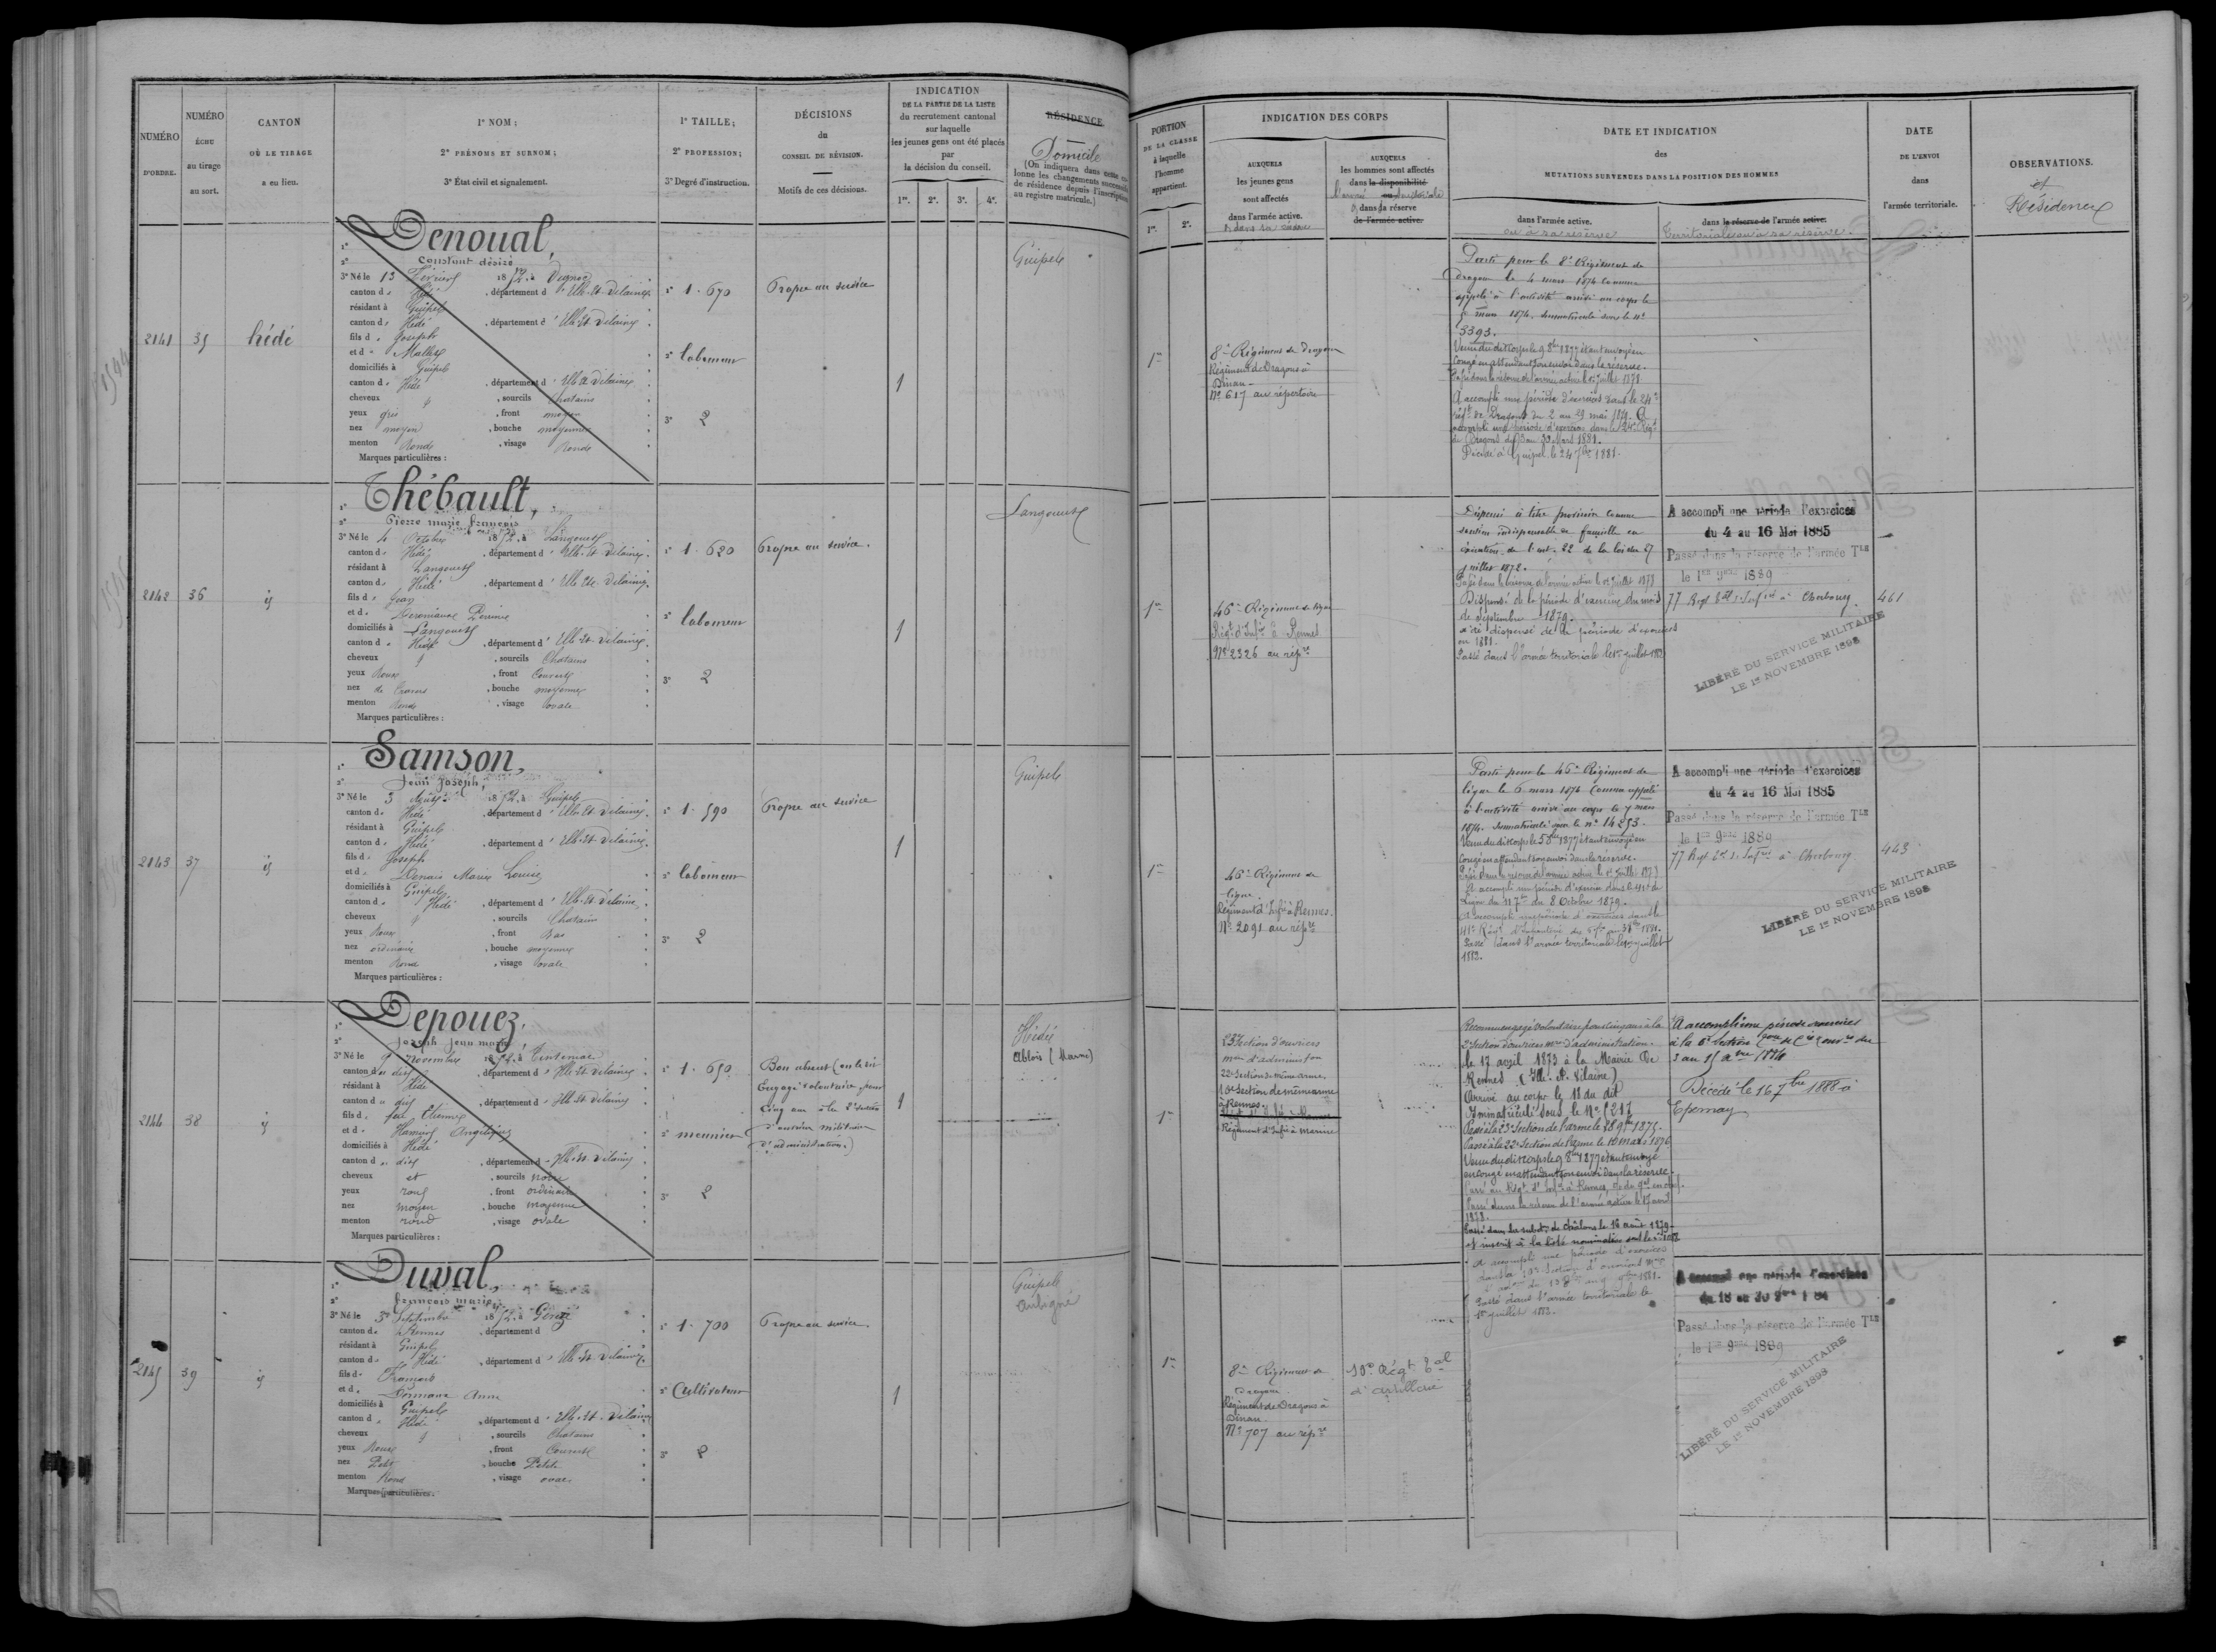 NUMÉRO D'ORDRE.
NUMÉRO ÉCHU au tirage au sort.
CANTON OÙ LE TIRAGE a eu lieu.
1° NOM;
2° PRÉNOMS ET SURNOM;
3° État civil et signalement.
1° TAILLE;
2° PROFESSION;
3° Degré d'instruction.
DÉCISIONS
du
CONSEIL DE RÉVISION.
Motifs de ces décisions.
INDICATION
DE LA PARTIE DE LA LISTE
du recrutement cantonal
sur laquelle
les jeunes gens ont été placés
par
la décision du conseil.
1re. 2e. 3e. 4e.
RÉSIDENCE
Domicile
(On indiquera dans cette co-
lonne les changements successifs
de résidence depuis l'inscription
au registre matricule.)
PORTION
DE LA CLASSE
à laquelle
l'homme
appartient.
1re. 2e.
INDICATION DES CORPS
AUXQUELS
les jeunes gens
sont affectés
dans l'armée active.
AUXQUELS
les hommes sont affectés
dans la disponibilité
dans la réserve
de l'armée active.
DATE ET INDICATION
des
MUTATIONS SURVENUES DANS LA POSITION DES HOMMES
dans l'armée active.
ou à sa réserve
dans la réserve de l'armée active.
Territoriale ou à sa réserve.
DATE
DE L'ENVOI
dans
l'armée territoriale.
OBSERVATIONS.
et
Résidence
2141 35 hédé
Denoual,
Constant désiré
3° Né le 13 Février 1852, à
canton de Hédé, département d'Ille-et-Vilaine
résidant à Guipel
canton de Hédé, département d'Ille-et-Vilaine
fils de Joseph
et de
domiciliés à Guipel
canton de Hédé, département d'Ille-et-Vilaine
cheveux et, sourcils Chatains
yeux gris, front moyen
nez moyen, bouche moyenne
menton Rond, visage Rond
Marques particulières :
1° 1.670
2° laboureur
3° 2
Propre au service
1
Guipel
1re
8e Régiment de Dragons
Régiment de Dragons à
Dinan
No 617 au répertoire
Parti pour le 8e Régiment de
dragons le 4 mars 1874 comme
appelé à l'activité arrivé au corps le
mars 1874. Immatriculé sous le No
3393.
Venu dudit corps le 9 8bre 1877 étant envoyé en
congé en attendant son envoi dans la réserve.
Passé dans la réserve de l'armée active le 1er juillet 1878
A accompli une période d'exercices dans le 24e
Régt de Dragons du 2 au 29 mai 1879. A
accompli une période d'exercices dans le 24e Régt
de Dragons du au 30 Mars 1881.
Décédé à Guipel le 24 1881.
2142 36 id
Thébault,
Pierre marie françois
3° Né le 4 Octobre 1852, à Langouet
canton de Hédé, département d'Ille-et-Vilaine
résidant à Langouet
canton de Hédé, département d'Ille-et-Vilaine
fils de Jean
et de Perrine
domiciliés à Langouet
canton de Hédé, département d'Ille-et-Vilaine
cheveux et, sourcils Chatains
yeux Roux, front Couvert
nez de travers, bouche moyenne
menton Rond, visage ovale
Marques particulières :
1° 1.620
2° laboureur
3° 2
Propre au service.
1
Langouet
1re
46e Régiment de ligne
Régt d'Infie à Rennes
No 2326 au répre
Dispensé à titre provisoire comme
soutien indispensable de famille en
exécution de l'art. 22 de la loi du 27
juillet 1872.
Passé dans la réserve de l'armée active le 1er juillet 1878
Dispensé de la période d'exercices du mois
de Septembre 1879.
a été dispensé de la période d'exercices
en 1881.
Passé dans l'armée territoriale le 1er juillet 1883
A accompli une période d'exercices
du 4 au 16 Mai 1885
Passé dans la réserve de l'armée Tle
le 1er 9bre 1889
77 Régt d'Infie à Cherbourg
461
LIBÉRÉ DU SERVICE MILITAIRE
LE 1er NOVEMBRE 1898
2143 37 id
Samson,
Jean Joseph,
3° Né le 3 Août 1852, à Guipel
canton de Hédé, département d'Ille-et-Vilaine
résidant à Guipel
canton de Hédé, département d'Ille-et-Vilaine
fils de Joseph
et de Denais Marie Louise
domiciliés à Guipel
canton de Hédé, département d'Ille-et-Vilaine
cheveux et, sourcils Chatains
yeux Roux, front Bas
nez ordinaire, bouche moyenne
menton Rond, visage ovale
Marques particulières :
1° 1.590
2° laboureur
3° 2
Propre au service
1
Guipel
1re
46e Régiment de
ligne
Régiment d'Infie à Rennes.
No 2091 au répre
Parti pour le 46e Régiment de
ligne le 6 mars 1874 comme appelé
à l'activité arrivé au corps le 7 mars
1874. Immatriculé sous le no 14253.
Venu dudit corps le 5 8bre 1877 étant envoyé en
congé en attendant son envoi dans la réserve.
Passé dans la réserve de l'armée active le 1er juillet 1878
A accompli une période d'exercices dans le 41e de
Ligne du 11 7bre au 8 Octobre 1879.
A accompli une période d'exercices dans le
41e Régt d'Infanterie du 1881.
Passé dans l'armée territoriale le 1er juillet
1883.
A accompli une période d'exercices
du 4 au 16 Mai 1885
Passé dans la réserve de l'armée Tle
le 1er 9bre 1889
77 Régt d'Infie à Cherbourg
443
LIBÉRÉ DU SERVICE MILITAIRE
LE 1er NOVEMBRE 1898
2144 38 id
Depouez,
Joseph Jean marie,
3° Né le 9 novembre 1852, à Tinténiac
canton du dit, département d'Ille-et-Vilaine
résidant à Hédé
canton du dit, département d'Ille-et-Vilaine
fils de feu Etienne
et de Angélique
domiciliés à Hédé
canton du dit, département d'Ille-et-Vilaine
cheveux et, sourcils noirs
yeux roux, front ordinaire
nez moyen, bouche moyenne
menton rond, visage ovale
Marques particulières :
1° 1.650
2° meunier
3° 2
Bon absent
Engagé volontaire pour
cinq ans à la 2e section
d'ouvriers militaires
d'administration.)
1
Hédé
Ablois (Marne)
1re
23e Section d'ouvriers
mres d'administon
22e Section de même arme.
10e Section de même arme
à Rennes.
Régiment d'Infie à Marine
Reconnu engagé volontaire pour cinq ans à la
2e Section d'ouvriers mres d'administration.
le 17 avril 1873 à la Mairie de
Rennes (Ille-et-Vilaine)
Arrivé au corps le 18 du dit
Immatriculé sous le No 1217
Passé à la 23e Section de l'arme le 28 9bre 1875.
Passé à la 22e Section de l'arme le 10 mars 1876
Venu dudit corps le 9 8bre 1877 étant envoyé
en congé en attendant son envoi dans la réserve.
Passé dans la réserve de l'armée active le 17 avril
1878.
Passé dans la subdon de Châlons le 16 août 1879
et inscrit à la liste nominative sous le
A accompli une période d'exercices
à la 6e Section
Décédé le 16 7bre 1888 à
Epernay
2145 39 id
Duval,
françois marie,
3° Né le 30 Septembre 1852, à
canton de Rennes, département d
résidant à Guipel
canton de Hédé, département d'Ille-et-Vilaine
fils de François
et de Anne
domiciliés à Guipel
canton de Hédé, département d'Ille-et-Vilaine
cheveux et, sourcils Chatains
yeux Roux, front Couvert
nez Petit, bouche Petite
menton Rond, visage ovale
Marques particulières :
1° 1.700
2° Cultivateur
3° 2
Propre au service.
1
Guipel
Aubigné
1re
8e Régiment de
Dragons.
Régiment de Dragons à
Dinan.
No 707 au répre
10e Régt Tal
d'artillerie
A accompli une période d'exercices
dans la 10e Section d'ouvriers
Passé dans l'armée territoriale le
1er juillet 1883.
A accompli une période d'exercices
Passé dans la réserve de l'armée Tle
le 1er 9bre 1889
LIBÉRÉ DU SERVICE MILITAIRE
LE 1er NOVEMBRE 1898